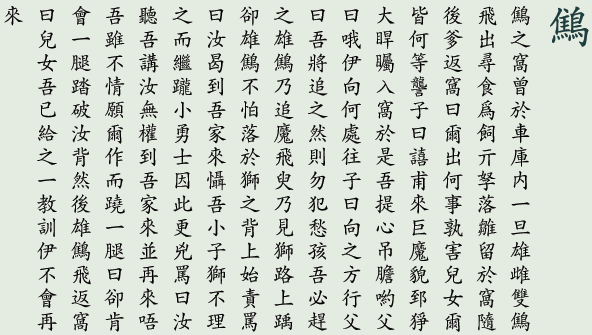 鷦
鷦之窩曾於車庫內一旦雄雌雙鷦
飛出尋食爲飼亓拏落雛留於窩隨
後爹返窩曰爾出何事孰害兒女爾
皆何等讋子曰譆甫來巨魔貌郅猙
大睅矚入窩於是吾提心吊膽喲父
曰哦伊向何處往子曰向之方行父
曰吾將追之然則勿犯愁孩吾必趕
之雄鷦乃追魔飛叟乃見獅路上踽
卻雄鷦不怕落於獅之背上始責罵
曰汝曷到吾家來懾吾小子獅不理
之而繼躘小勇士因此更兇罵曰汝
聽吾講汝無權到吾家來並再來唔
吾雖不情願爾作而蹺一腿曰卻肯
會一腿踏破汝背然後雄鷦飛返窩
曰兒女吾已給之一教訓伊不會再
來